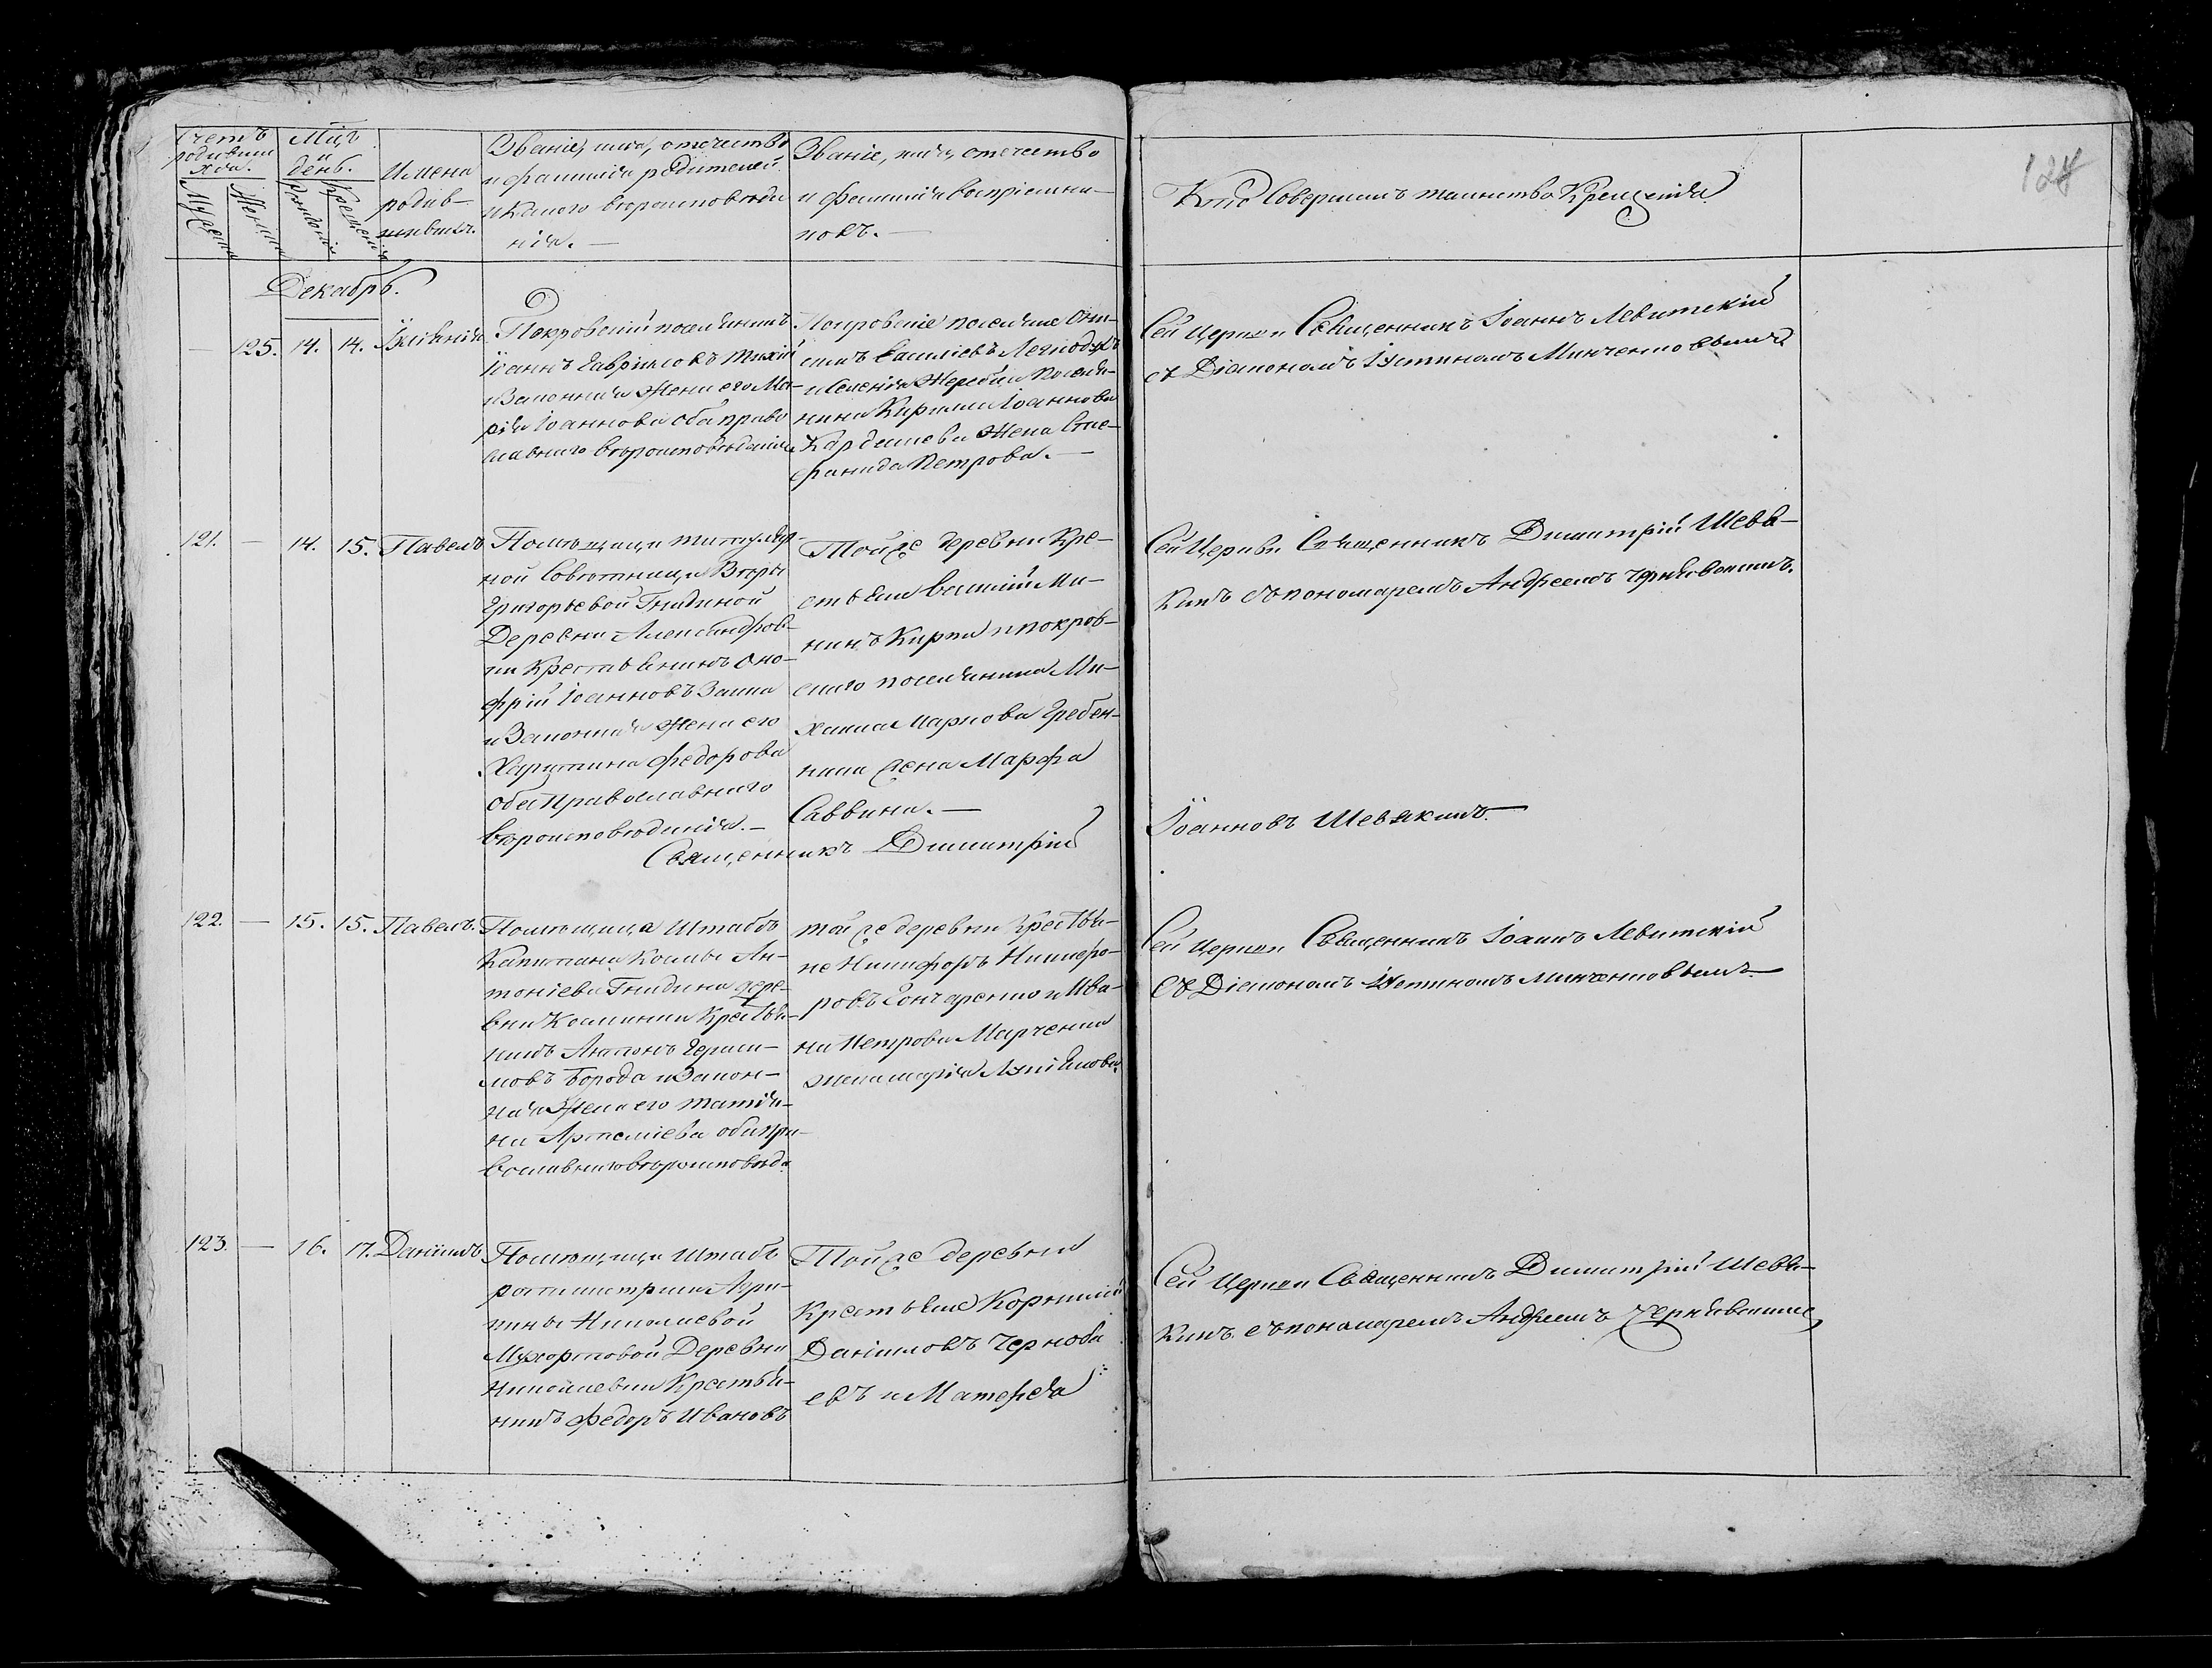 128
Счетъ родившихся.
Мужеска
Женска
Мцъ и день.
Рожденія
Крещенія
Имена родив-
шихся.
Званіе, имя, отечество
и фамилія родителей
и какого вѣроисповѣда
нія. —
Званіе, имя, отечество
и фамилія воспріемни-
ковъ. —
Кто Совершалъ таинство Крещенія
Декабрь.
— 125. 14. 14.
Покровскій поселянинъ
Іоаннъ Гавриловъ Тихій
и Законная Жена его Ма-
рія Іоаннова оба право
славнаго вѣроисповѣданія
Покровскіе поселяне
Василіевъ
Поселя-
нина Кирилла Іоаннова
Жена Сте-
фанида Петрова. —
Сей Церкви Священникъ Іоаннъ Левитскій
съ Діакономъ Іустиномъ Минченковымъ
121. — 14. 15. Павелъ
Помѣщицы титуляр-
ной Совѣтницы Вѣры
Григорьевой Гнидиной
Деревни Александров-
ки Крестьянинъ Оно-
фрій Іоанновъ Заика
и Законная Жена его
Харитина Федорова
оба Православнаго
вѣроисповѣданія. —
Той же деревни Кре-
стьяне
Кирпа и покров-
скаго поселянина Ми-
хаила Маркова Гребен-
ника жена Марфа
Саввина. —
Сей Церкви Священникъ Димитрій Шевя-
кинъ съ пономаремъ Андреемъ Чернявскимъ.
Священникъ Димитрій
Іоанновъ Шевякинъ. —
122. — 15. 15. Павелъ.
Помѣщика Штабсъ
Капитана Космы Ан-
тоніева Гнидина дере-
вни Косминки Крестья-
нинъ Антонъ Гераси-
мовъ Борода и Закон-
ная Жена его Татія-
на Артеміева оба пра-
вославнаго вѣроисповѣда
той же деревни Крестья-
не Никифоръ Никифо-
ровъ Гончаренко и Ива-
на Петрова Марченка
жена Марія
Сей Церкви Священникъ Іоаннъ Левитскій
Съ Діакономъ Іустиномъ Минченковымъ —
123. — 16. 17. Даніилъ
Помѣщицы Штабъ
ротмистрши Агри-
пины Николаевой
Мухортовой Деревни
Николаевки Крестья-
нинъ Федоръ Ивановъ
Той же деревни
Крестьяне Корнилій
Даніиловъ Черноба
евъ и Матефея
Сей Церкви Священникъ Димитрій Шевя-
кинъ съ пономаремъ Андреемъ Чернявскимъ